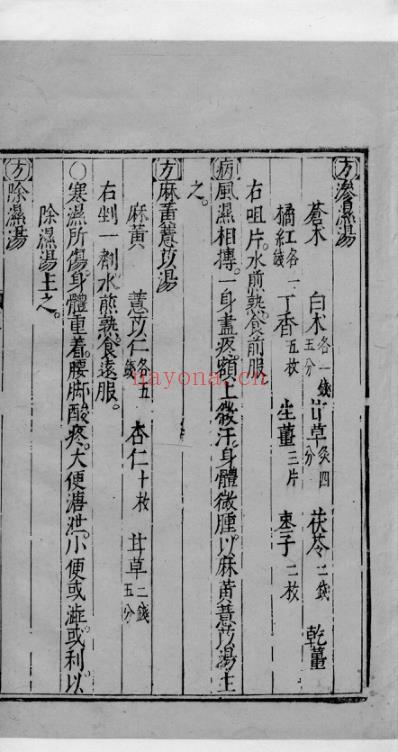 方滲濕湯
蒼朮 白朮各一錢五分 甘草炙四分 茯苓二錢 乾薑
橘紅各一錢 丁香五枚 生薑三片 棗子二枚
右㕮片水煎熟食前服
病風濕相搏一身盡疼額上微汗身體微腫以麻黃薏苡湯主
之
方麻黃薏苡湯
麻黃 薏苡仁各五錢 杏仁十枚 甘草二錢五分
右剉一劑水煎熟食遠服
○寒濕所傷身體重着腰脚酸疼大便溏泄小便或澁或利以
除濕湯主之
方除濕湯
nayona.cn